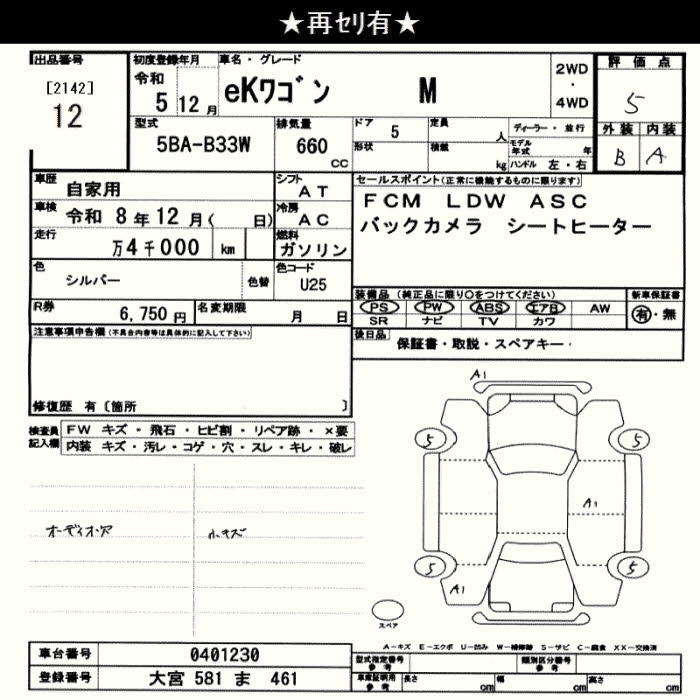 ★再セリ有★
出品番号
[2142]
12
初度登録年月
令和
5 12月
車名・グレード
eKワゴン M
2WD
・
4WD
評価点
5
外装 内装
B A
型式
5BA-B33W
排気量
660
CC
ドア
5
形状
定員
人
積載
kg
ディーラー・並行
モデル年式
年
ハンドル 左・右
車歴
自家用
シフト
AT
車検
令和 8年12月( 日)
冷房
AC
走行
万4千000 km
燃料
ガソリン
色
シルバー
色替
色コード
U25
R券
6,750円
名変期限
月 日
セールスポイント(正常に機能するものに限ります)
FCM LDW ASC
バックカメラ シートヒーター
装備品 (純正品に限り○をつけてください)
新車保証書
PS PW ABS エアB AW
SR ナビ TV カワ
有・無
後日品
保証書・取説・スペアキー・
注意事項申告欄(不具合内容等は具体的に記入して下さい)
修復歴 有〔箇所 〕
検査員
記入欄
FW キズ・飛石・ヒビ割・リペア跡・×要
内装 キズ・汚レ・コゲ・穴・スレ・キレ・破レ
オーディオ穴
小キズ
A1
5
5
A1
5
5
A1
スペア
A-キズ E-エクボ U-凹み W-補修跡 S-サビ C-腐食 XX-交換済
車台番号
0401230
登録番号
大宮 581 ま 461
型式指定番号
参考
類別区分番号
参考
車庫証明用
参考
長さ cm
幅 cm
高さ cm